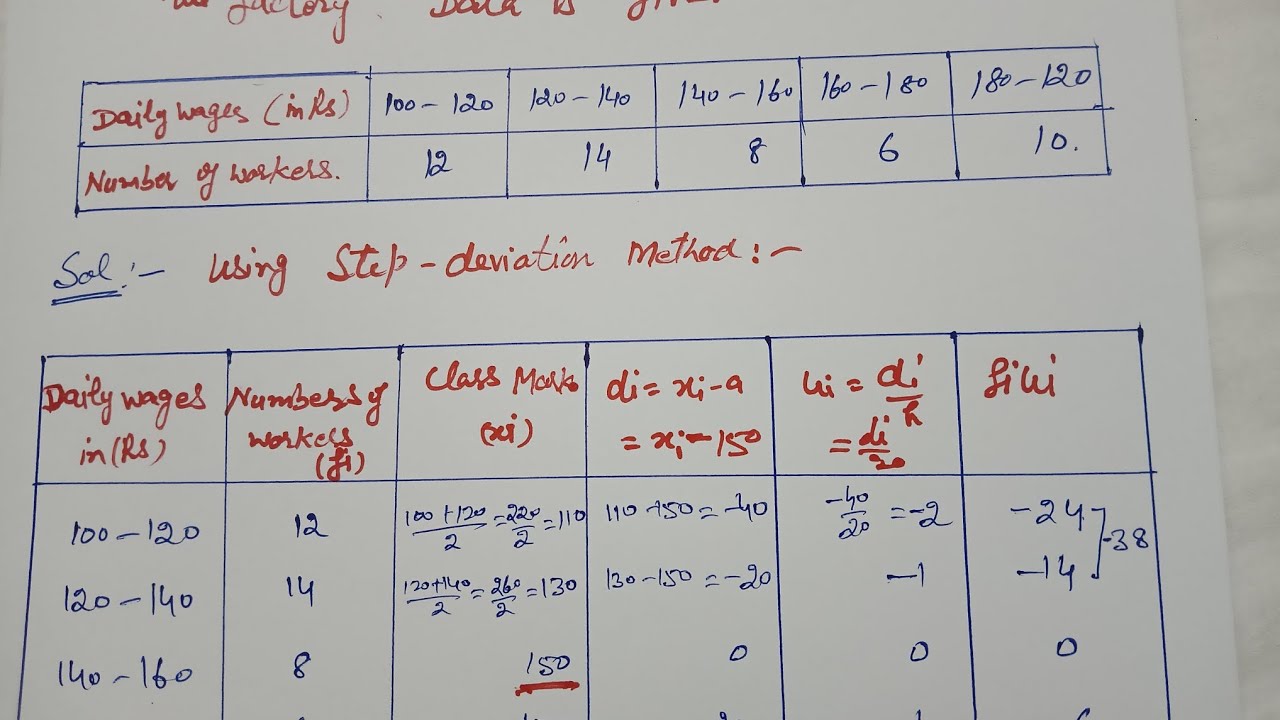 factory. Data is
Daily wages (in Rs) 100-120 120-140 140-160 160-180 180-120
Number of workers. 12 14 8 6 10.
Sol:- Using Step-deviation Method:-
Daily wages in (Rs) Numbers of workers (fi) Class Mark (xi) di = xi-a = xi-150 ui = di/h = di/20 fiui
100-120 12 100+120/2 = 220/2 = 110 110-150 = -40 -40/20 = -2 -24
-38
120-140 14 120+140/2 = 260/2 = 130 130-150 = -20 -1 -14
140-160 8 150 0 0 0